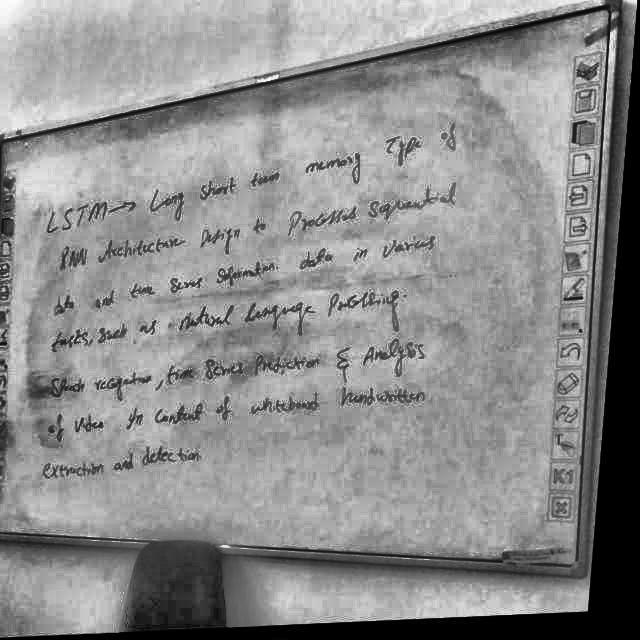 LSTM → Long short term memory Type of
RNN Architecture Design to Processed Sequential
data and time Series Information data in various
tasks, such as Natural Language
recognition, time Series Prediction & Analysis
of Video In Context of whiteboard handwritten
extraction and detection